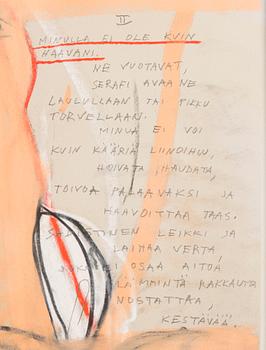 II
MINULLA EI OLE KUIN
HAAVANI.
NE VUOTAVAT,
SERAFI AVAA NE
LAULULLAAN TAI PIKKU
TORVELLAAN.
MINUA EI VOI
KUIN KÄÄRIÄ LIINOIHIN,
HOIVATA, HAUDATA,
TOIVOA PALAAVAKSI JA
HAAVOITTAA TAAS.
LEIKKI JA
LAINAA VERTA,
EI OSAA AITOA
LÄMMINTÄ RAKKAUTTA
NOSTATTAA,
KESTÄVÄÄ.